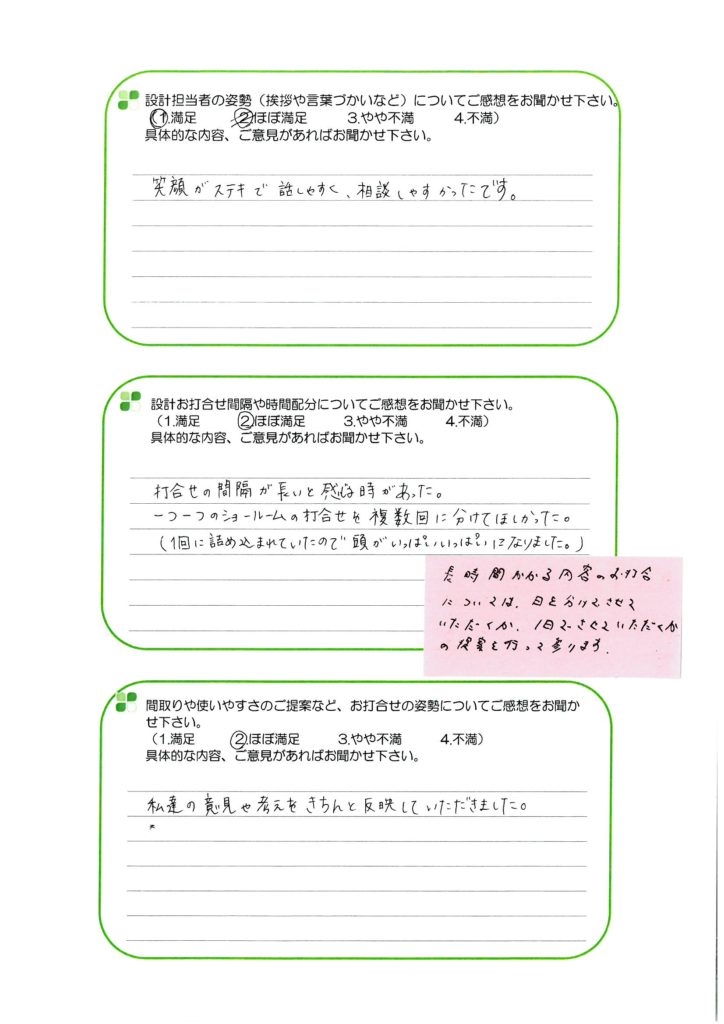 設計担当者の姿勢（挨拶や言葉づかいなど）についてご感想をお聞かせ下さい。
（1.満足 2.ほぼ満足 3.やや不満 4.不満）
具体的な内容、ご意見があればお聞かせ下さい。
笑顔がステキで話しやすく、相談しやすかったです。
設計お打合せ間隔や時間配分についてご感想をお聞かせ下さい。
（1.満足 2.ほぼ満足 3.やや不満 4.不満）
具体的な内容、ご意見があればお聞かせ下さい。
打合せの間隔が長いと感じる時があった。
一つ一つのショールームの打合せを複数回に分けてほしかった。
（1回に詰め込まれていたので頭がいっぱいいっぱいになりました。）
長時間かかる内容のお打合
については、日を分けてさせて
いただくか、1日でさせていただくか
の提案を行って参ります。
間取りや使いやすさのご提案など、お打合せの姿勢についてご感想をお聞か
せ下さい。
（1.満足 2.ほぼ満足 3.やや不満 4.不満）
具体的な内容、ご意見があればお聞かせ下さい。
私達の意見や考えをきちんと反映していただきました。